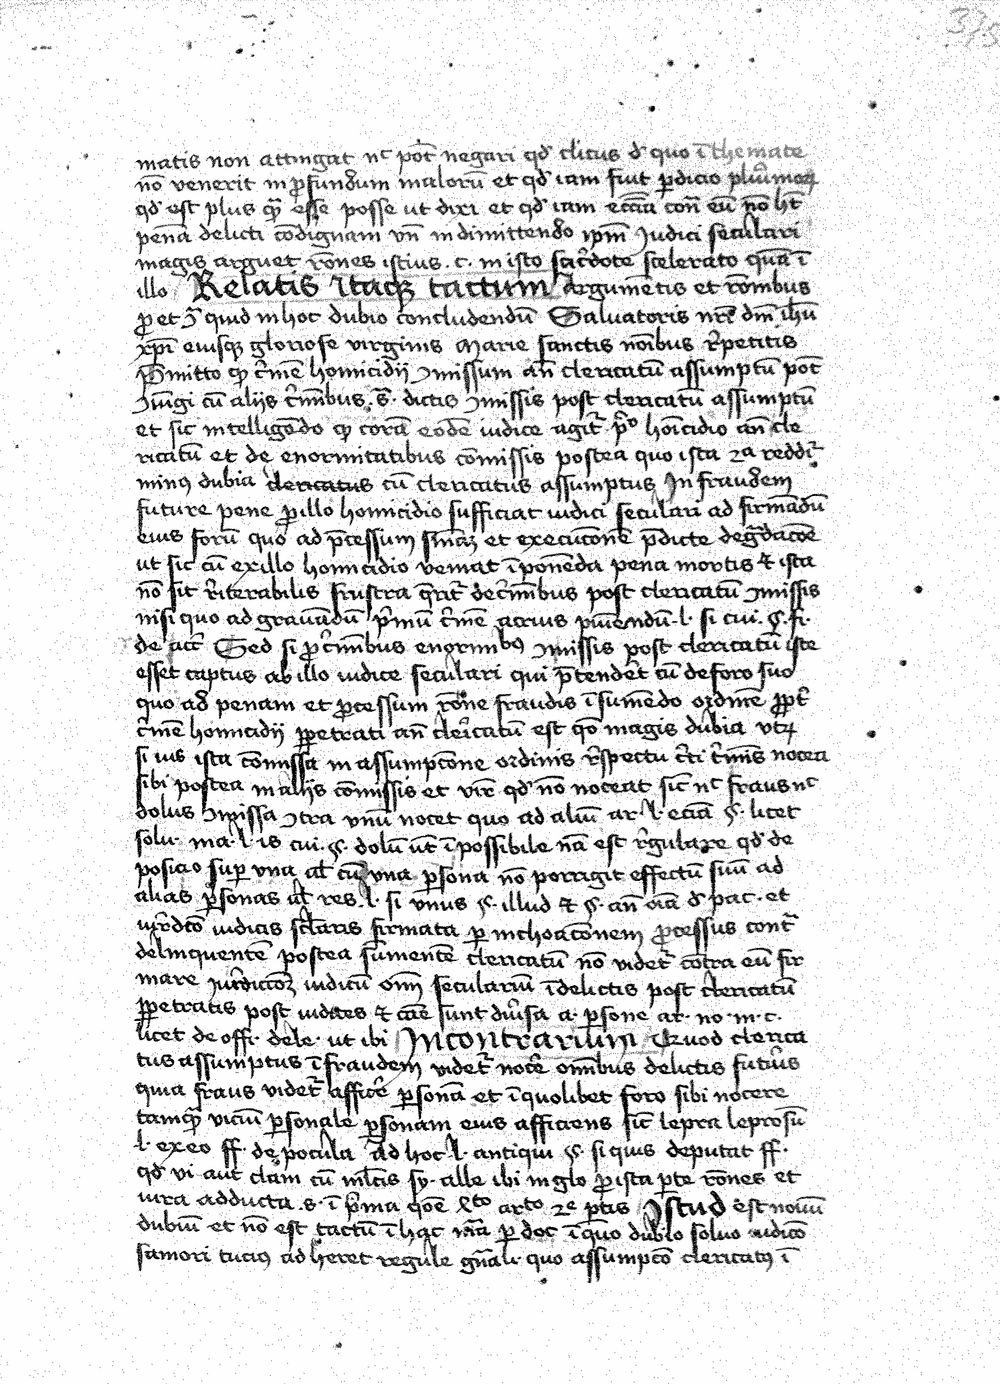 matis non attingat nc pot negari qd clicus d quo i themate
no venerit in profundum maloru et qd iam fiut perdicio pluimoru
qd est plus qm esse posse ut dixi et qd iam eccia con eu no ht
pena delicti condignam vn in dimittendo ipm judici seculari
magis arguet rones istius .c. in isto scdote scelerato qua i
illo Relatis itaq tactum argumentis et romibus
pro et quid in hoc dubio concludendu Salvatoris nri dni ihu
xpi eiusq gloriose virginis Marie sanctis noibus repetitis
mitto q crime homicidij missum an clericatu assumptu pot
jungi cu alijs criminibus .s. dictis missis post clericatu assumptu
et sic intelligendo q cora eode iudice agit pro hoicidio an cle
ricatu et de enormitatibus comissis postea quo ista 2a reddit
minus dubia clericatus cu clericatus assumptus In fraudem
future pene pro illo homicidio sufficiat iudici seculari ad firmadu
eius foru quo ad processum et execucone predicte degradacoe
ut sic cu ex illo homicidio veniat i ponenda pena mortis et ista
no sit reiterabilis frustra qrit de criminibus post clericatu missis
nisi quo ad gravadu primu crime acrius puniendu .l. si cui .§. fi.
de acc Sed si pro criminibus enormibus missis post clericatu iste
esset captus ab illo iudice seculari qui pretendert cu de foro suo
quo ad penam et processum rone fraudis i sumendo ordine propter
crime homicidij perpetrati an clericatu est qo magis dubia utrum
si ius ista comissa in assumpcone ordinis respectu certi criminis nocea
sibi postea in alijs comissis et vir qd no noceat sic nc fraus nc
dolus missa contra unu nocet quo ad aliu ar .l. ecia §. licet
solu. ma .l. is cui .§. dolu ut i possibile na est regulare qd de
posicio super una al cu una persona no porrigit effectu suu ad
alias personas al res .l. si unus §. illud et §. an oia d pac. et
iurdco iudicis seclaris firmata per inchoaconem processus cont
delinquente postea sumente clericatu no videt contra eu fir
mare iurdicoe iudicu oim seculariu i delictis post clericatu
perpetratis post iudices et cause sunt diversa a persone ar. no. in. c.
licet de offi. dele. ut ibi In contrarium Quod clerica
tus assumptus i fraudem videt nocere omibus delictis futuris
quia fraus videt afficere persona et i quolibet foro sibi nocere
tamqm viciu personale personam eius afficiens sic lepra leprosu
.l. ex eo ff. de pocula ad hoc .l. antiqui §. si quis deputat ff.
qd vi aut clam cu mltis sy. alle ibi in glo pro ista parte rones et
iura adducta .s. i prima qoe xto arto 2e ptis Istud est nouu
dubiu et no est tactu i hac ma per doc i quo dubio soluo iudico
samori tucius ad heret regule gnali quo assumpco clericatus i